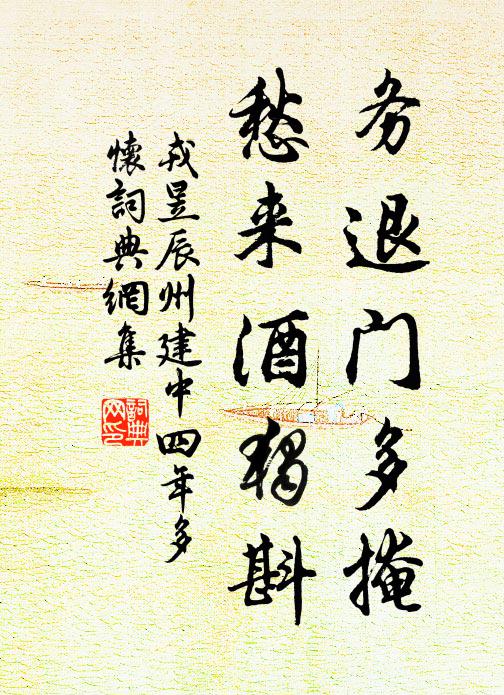 务退门多掩
愁来酒独斟
戎昱辰州建中四年多
懷詞典網集
詞典
网印